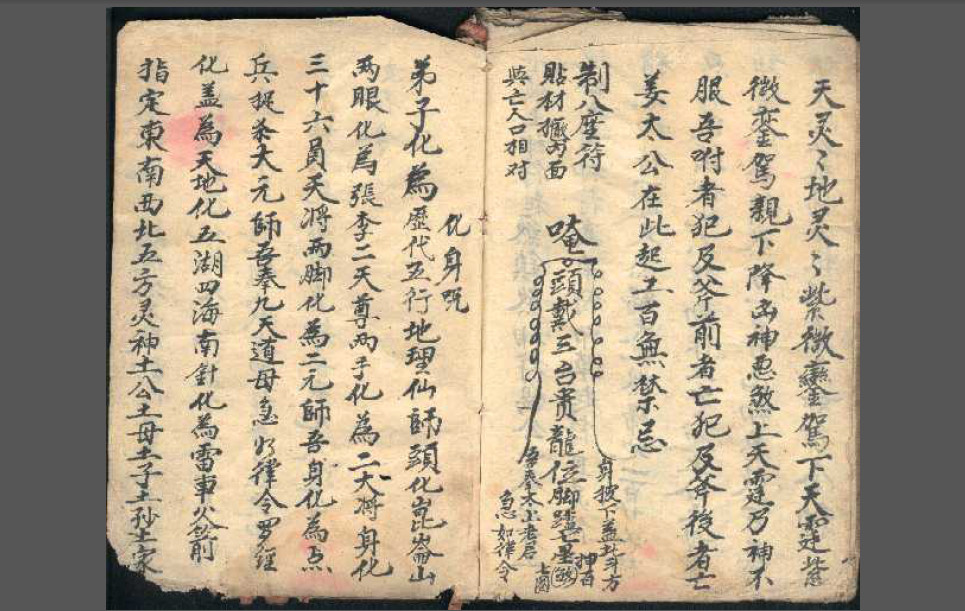 天灵〻地灵〻紫微鑾駕下天霆紫
微鑾駕親下降凶神惡煞上天霆乃神不
服吾咐者犯及斧前者亡犯及斧後者亡
姜太公在此起工百無禁忌
制八座符
貼材攧对面
與亡人口相对
唵頭戴三台贵龍位脚踏七星
身披下蓋北斗方
押百
吾奉太上老君
急如律令
化身咒
弟子化為歷代五行地理仙師頭化崑崙山
两眼化為張李二天尊两手化為二大將身化
三十六員天将两脚化為二元師吾身化為点
兵捉杀大元師吾奉九天道母急如律令罗經
化盖為天地化五湖四海南針化為雷車火箭
指定東南西北五方灵神土公土母土子土孙土家